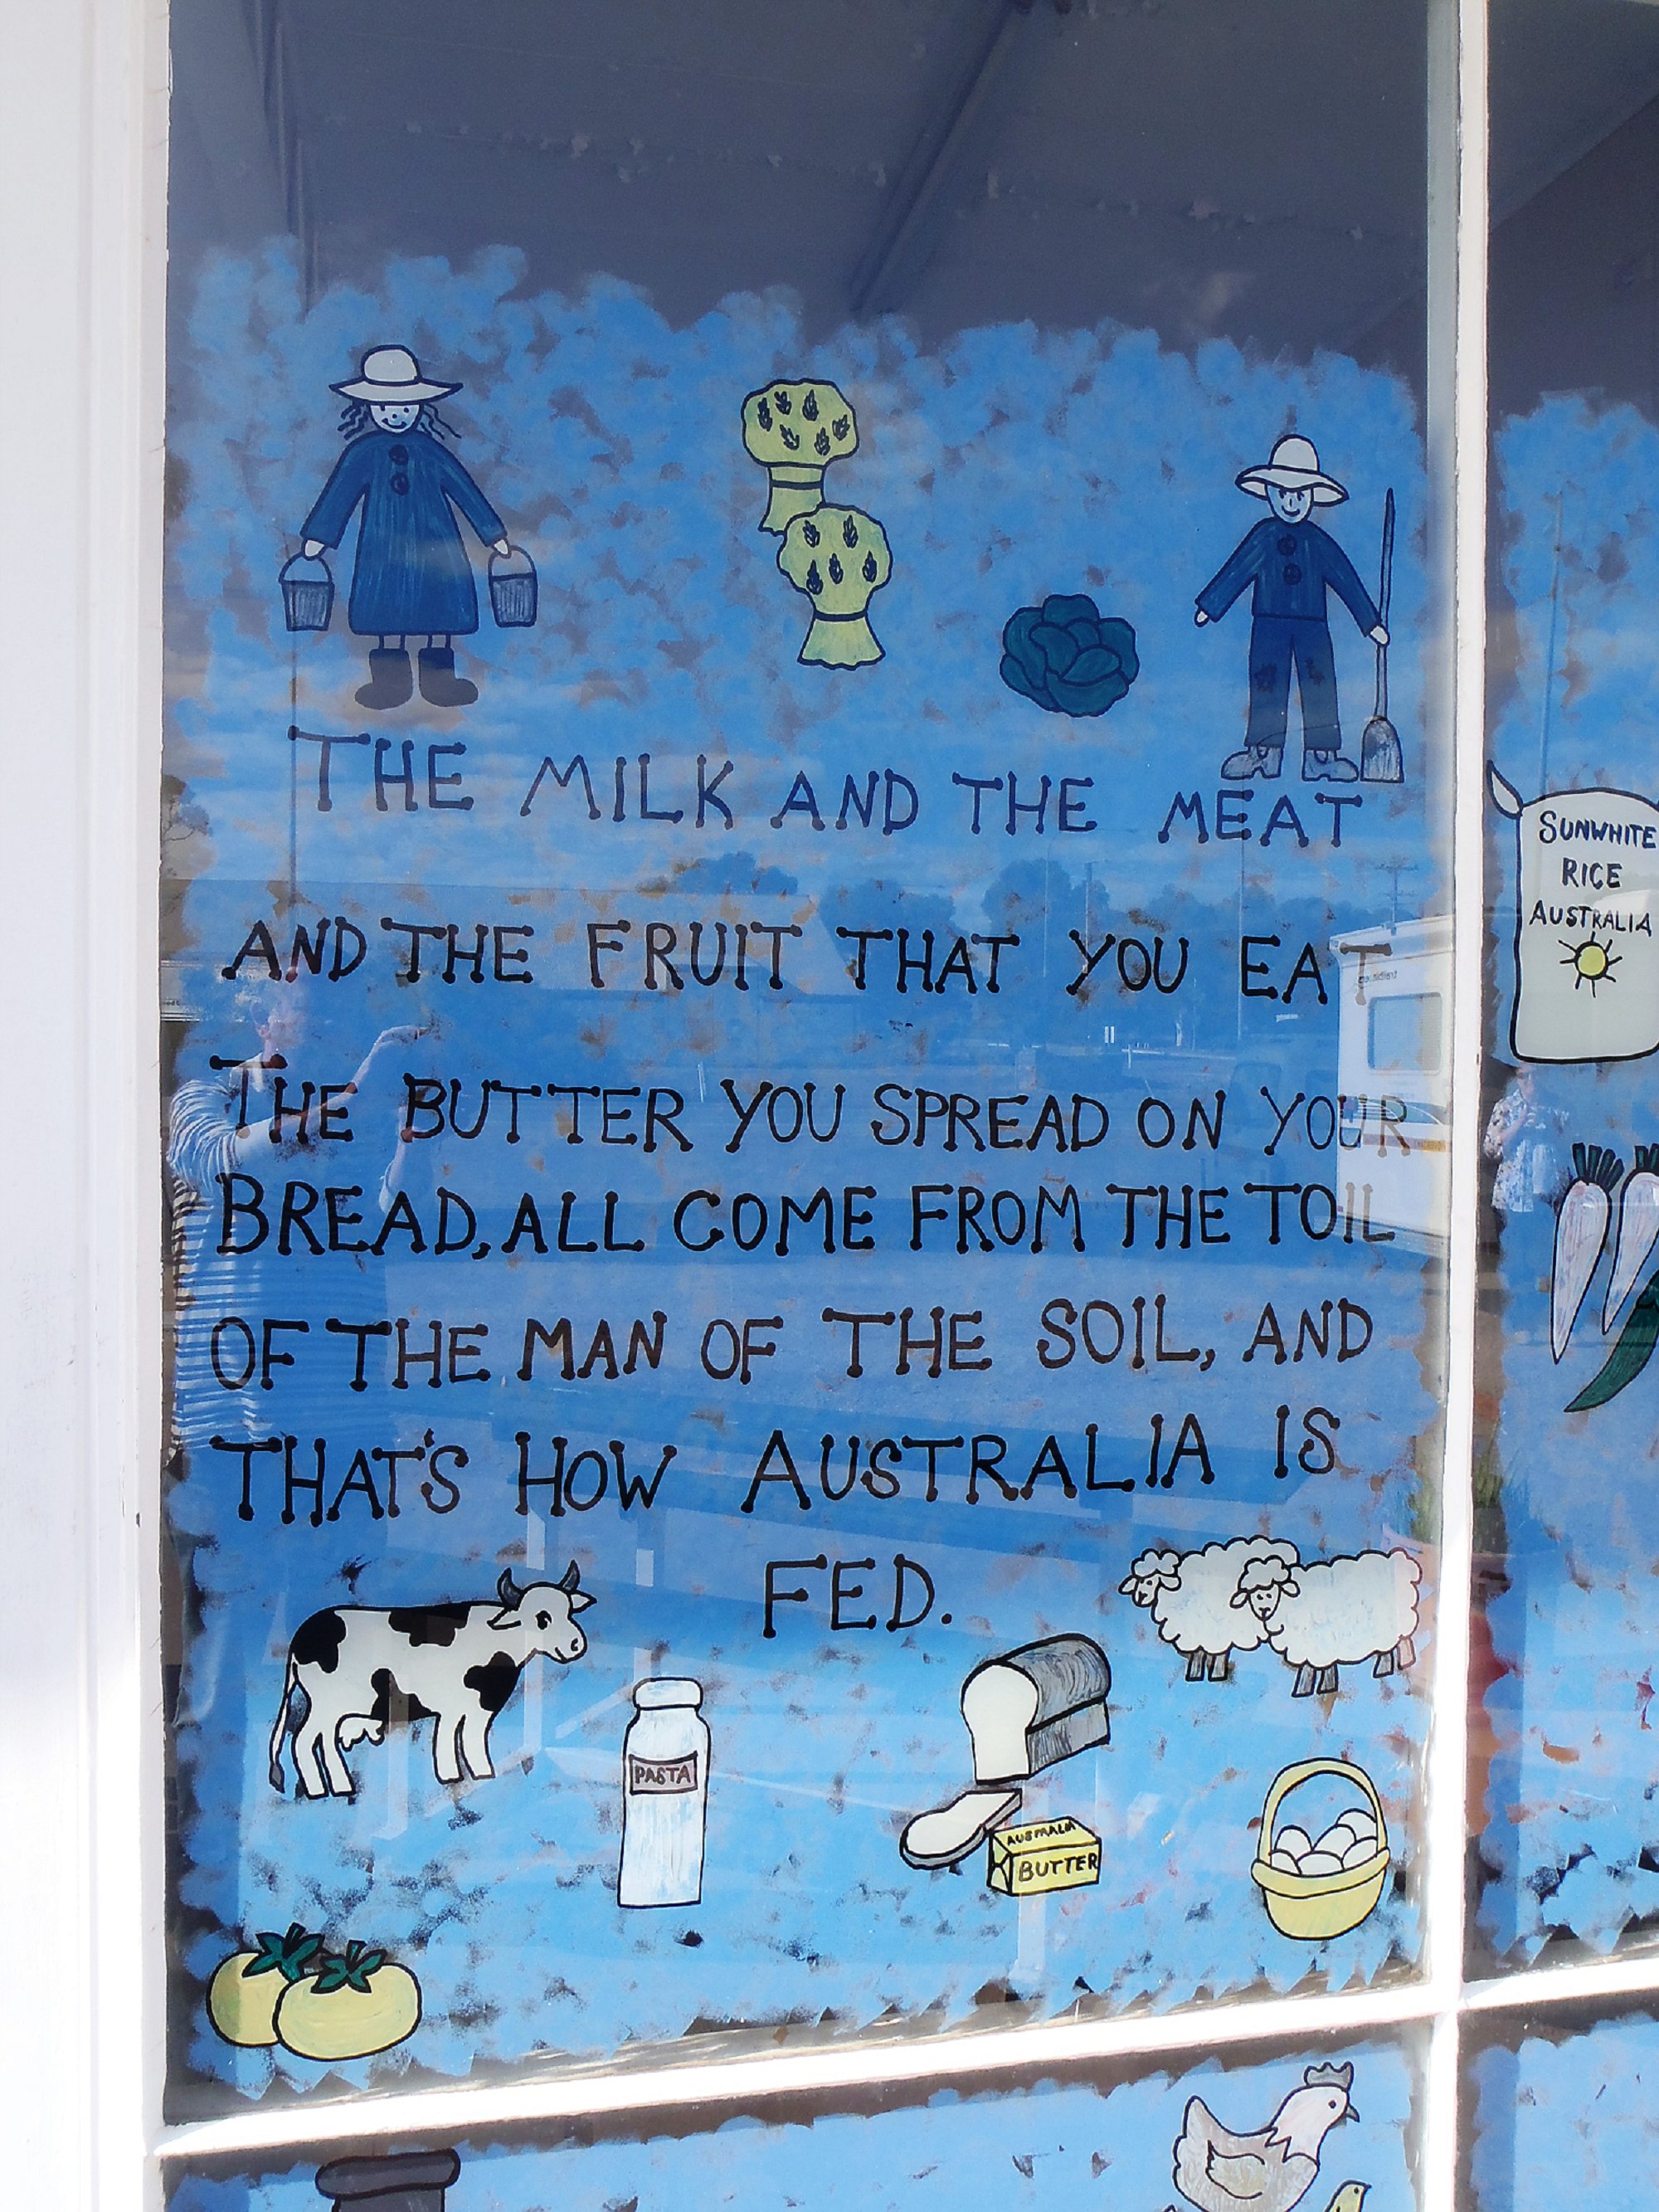 THE MILK AND THE MEAT
AND THE FRUIT THAT YOU EAT
THE BUTTER YOU SPREAD ON YOUR
BREAD, ALL COME FROM THE TOIL
OF THE MAN OF THE SOIL, AND
THAT'S HOW AUSTRALIA IS
FED.
PASTA
AUSTRALIA
BUTTER
SUNWHITE
RICE
AUSTRALIA